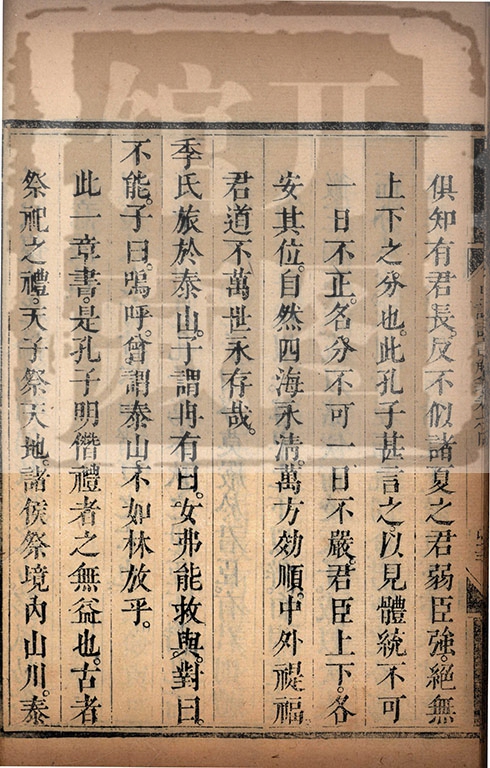 俱知有君長。反不似諸夏之君弱臣強。絕無
上下之分也。此孔子甚言之以見體統不可
一日不正。名分不可一日不嚴。君臣上下。各
安其位。自然四海永清。萬方効順。中外禔福。
君道不萬世永存哉。
季氏旅於泰山。子謂冉有曰。女弗能救與。對曰。
不能。子曰。嗚呼。曾謂泰山。不如林放乎。
此一章書。是孔子明僭禮者之無益也。古者
祭祀之禮。天子祭天地。諸侯祭境內山川。泰